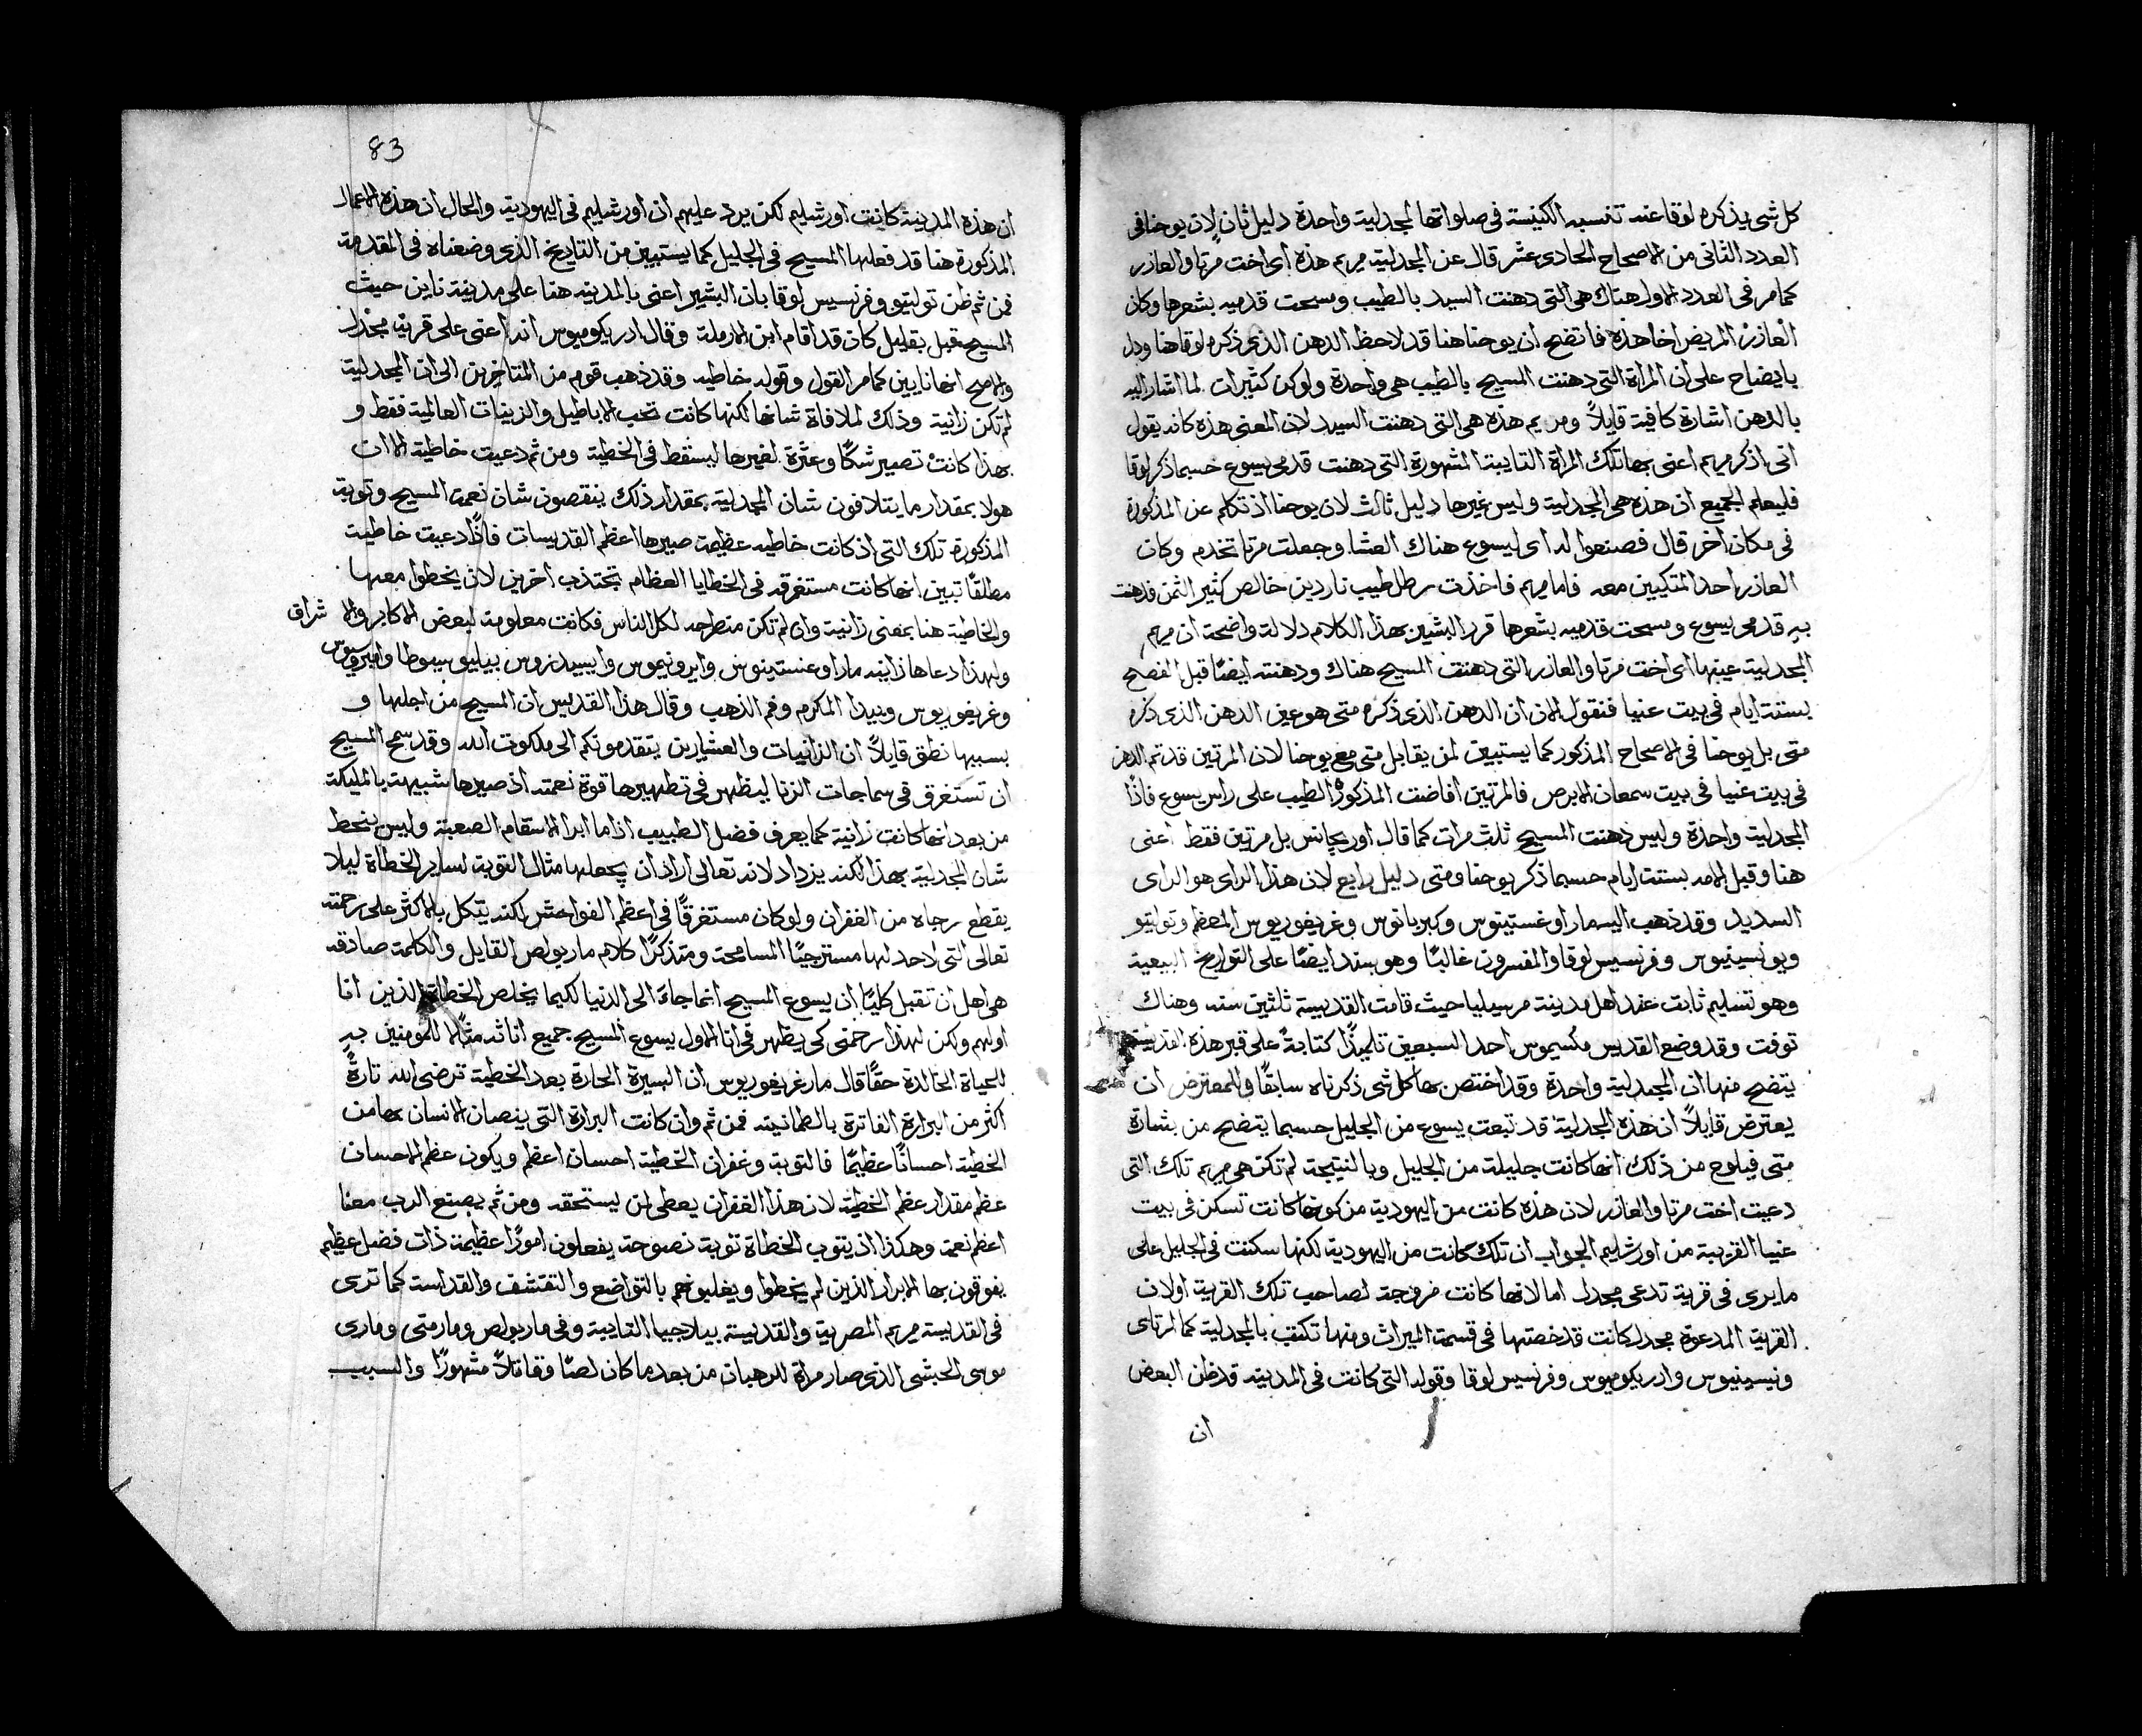 كل شى يذكره لوقا عنه تنسبه الكنيسة فى صلواتها لمجدلية واحدة دليل ثانٍ لان يوحنا فى
العدد الثانى من الاصحاح الحادى عشر قال عن المجدلية مريم هذه اى اخت مرتا والعازر
كما مر فى العدد الاول هناك هى التى دهنت السيد بالطيب ومسحت قدميه بشعرها وكان
العازر المريض اخا هذه فاتضح ان يوحنا هنا قد لاحظ الدهن الذى ذكره لوقا هنا ودل
بايضاح على ان المراة التى دهنت المسيح بالطيب هى واحدة ولو كن كثيرات لما اشار اليه
بالدهن اشارة كافية قايلاً ومريم هذه هى التى دهنت السيد لان المعنى هذه كانه يقول
انى اذكر مريم اعنى بها تلك المراة التايبة المشهورة التى دهنت قدمى يسوع حسبما ذكر لوقا
فليعلم الجميع ان هذه هى المجدلية وليس غيرها دليل ثالث لان يوحنا اذ تكلم عن المذكورة
فى مكان اخر قال فصنعوا له اى ليسوع هناك العشا وجعلت مرتا تخدم وكان
العازر احد المتكيين معه فاما مريم فاخذت رطل طيب ناردين خالص كثير الثمن فدهنت
به قدمى يسوع ومسحت قدميه بشعرها قرر البشير بهذا الكلام دلالة واضحة ان مريم
المجدلية عينها اى اخت مرتا والعازر التى دهنت المسيح هناك ودهنته ايضًا قبل الفصح
بستة ايام فى بيت عنيا فنقول الان ان الدهن الذى ذكره متى هو عين الدهن الذى ذكره
متى بل يوحنا فى الاصحاح المذكور كما يستبين لمن يقابل متى مع يوحنا لان المرتين قد تم الدهن
فى بيت عنيا فى بيت سمعان الابرص فالمرتين افاضت المذكورة الطيب على راس يسوع فاذًا
المجدلية واحدة وليس دهنت المسيح ثلث مرات كما قال اوريجانس بل مرتين فقط اعنى
هنا وقبل الامه بستة ايام حسبما ذكر يوحنا ومتى دليل رابع لان هذا الراى هو الراى
السديد وقد ذهب اليه مار اوغستينوس وكبريانوس وغريغوريوس المعظم وتوليتو
ويونسينيوس وفرنسيس لوقا والمفسرون غالبًا وهو سند ايضًا على التواريخ البيعية
وهو تسليم ثابت عند اهل مدينة مرسيليا حيث قامت القديسة ثلثين سنه وهناك
توفت وقد وضع القديس مكسيموس احد السبعين تلميذًا كتابةً على قبر هذه القديسة
يتضح منها ان المجدلية واحدة وقد اختص بها كل شى ذكرناه سابقًا والمعترض ان
يعترض قايلاً ان هذه المجدلية قد تبعت يسوع من الجليل حسبما يتضح من بشارة
متى فيلوح من ذلك انها كانت جليلة من الجليل وبالنتيجة لم تكن هى مريم تلك التى
دعيت اخت مرتا والعازر لان هذه كانت من اليهودية من كونها كانت تسكن فى بيت
عنيا القريبة من اورشليم الجواب ان تلك كانت من اليهودية لكنها سكنت فى الجليل على
ما يرى فى قرية تدعى مجدل اما لانها كانت مزوجة لصاحب تلك القرية او لان
القرية المدعوة مجدل كانت قد خصتها فى قسمة الميراث ومنها تكنت بالمجدلية كما ارتاى
ونيسينيوس وادريكوميوس وفرنسيس لوقا وقوله التى كانت فى المدينة قد ظن البعض
ان
83
ان هذه المدينة كانت اورشليم لكن يرد عليهم ان اورشليم فى اليهودية والحال ان هذه الاعمال
المذكورة هنا قد فعلها المسيح فى الجليل كما يستبين من التاريخ الذى وضعناه فى المقدمة
فمن ثم ظن توليتو وفرنسيس لوقا بان البشير اعنى بالمدينه هنا على مدينة نايين حيث
المسيح قبل بقليل كان قد اقام ابن الارملة وقال ادريكوميوس انه اعنى على قرية مجدل
والاصح انها نايين كما مر القول وقوله خاطيه وقد ذهب قوم من المتاخرين الى ان المجدلية
لم تكن زانية وذلك لملافاة شانها لكنها كانت تحب الاباطيل والزينات العالمية فقط و
بهذا كانت تصير شكًا وعثرة لغيرها ليسقط فى الخطية ومن ثم دعيت خاطية الا ان
هولا بمقدار ما يتلافون شان المجدلية بمقدار ذلك ينقصون شان نعمة المسيح وتوبة
المذكورة تلك التى اذ كانت خاطيه عظيمة صيرها اعظم القديسات فاذًا دعيت خاطية
مطلقًا تبين انها كانت مستغرقه فى الخطايا العظام تجتذب اخرين لان يخطوا معها
والخاطية هنا بمعنى زانية وان لم تكن منطرحه لكل الناس فكانت معلومة لبعض الاكابر والا شراق
ولهذا دعاها زانيه مار اوغنستينوس وايرونيموس وايسيدوروس بيليوسيوطا وامبروسيوس
وغريغوريوس وبيدا المكرم وفم الذهب وقال هذا القديس ان المسيح من اجلها و
بسببها نطق قايلاً ان الزانيات والعشارين يتقدمونكم الى ملكوت الله وقد سمح المسيح
ان تستغرق فى سماجات الزنا ليظهر فى تطهيرها قوة نعمته اذ صيرها شبيهة بالمليكة
من بعد انها كانت زانية كما يعرف فضل الطبيب اذا ما ابرا الاسقام الصعبة وليس ينحط
شان المجدلية بهذا لكنه يزداد لانه تعالى اراد ان يجعلها مثال التوبة لساير الخطاة ليلا
يقطع رجاه من الغفران ولو كان مستغرقًا فى اعظم الفواحش لكنه يتكل بالاكثر على رحمته
تعالى التى لا حد لها مسترجيًا المسامحة ومتذكرًا كلام مار بولص القايل والكلمة صادقه
هى اهل ان تقبل كليًا ان يسوع المسيح انما جاءَ الى الدنيا لكيما يخلص الخطاة الذين انا
اولهم ولكن لهذا رحمنى كى يظهر فى انا الاول يسوع المسيح جميع اناثه مثالا للمومنين به
للحياة الخالدة حقًا قال مار غريغوريوس ان السيرة الحارة بعد الخطية ترضى الله تارةً
اكثر من البرارة الفاترة بالطمانينه فمن ثم وان كانت البرارة التى ينصان الانسان بها من
الخطية احسانًا عظيمًا فالتوبة وغفران الخطية احسان اعظم ويكون عظم الاحسان
عظم مقدار عظم الخطية لان هذا الغفران يعطى لمن ليستحقه ومن ثم يصنع الرب معنا
اعظم نعمة وهكذا اذ يتوب الخطاة توبة نصوحة يفعلون امورًا عظيمة ذات فضل عظيم
يفوقون بها الابرار الذين لم يخطوا ويغلبونهم بالتواضع والتقشف والقداسة كما ترى
فى القديسة مريم المصرية والقديسة بيلاجيا التايبة وفى مار بولص ومار متى ومارى
موسى الحبشى الذى صار مراة للرهبان من بعد ما كان لصًا وقاتلاً مشهورًا والسبب